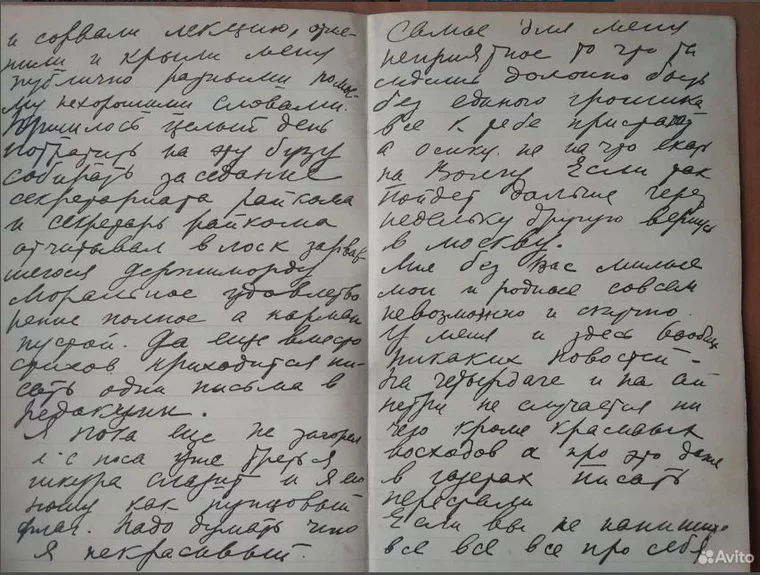 и сорвали лекцию, отме-
нили и крыли меня
публично разными по
му нехорошими словами.
Пришлось целый день
потратить на эту бузу
собирать заседание
секретариата райкома
и секретарь райкома
отчитывал в лоск зарвав
шегося держиморду
моральное удовлетво
рение полное а карман
пустой. Да еще вместо
стихов приходится пи-
сать одни письма в
редакции.
Я пока еще не загорел
с носа уже третья
шкура слазит и я его
ношу как пунцовый
флаг. Надо думать что
я некрасивый.
Самое для меня
неприятное то что ты
сидишь должно быть
без единого грошика
все к тебе пристают
а Осику не на что ехать
на Волгу Если так
пойдет дальше через
недельку другую вернусь
в Москву.
Мне без Вас милые
мои и родные совсем
невозможно и скучно.
У меня и здесь вообще
никаких новостей -
На Четырдаге и на Ай
Петри не случается ни
чего кроме красивых
восходов а про это даже
в газетах писать
перестали
Если вы не напишите
все все все про себя
Avito